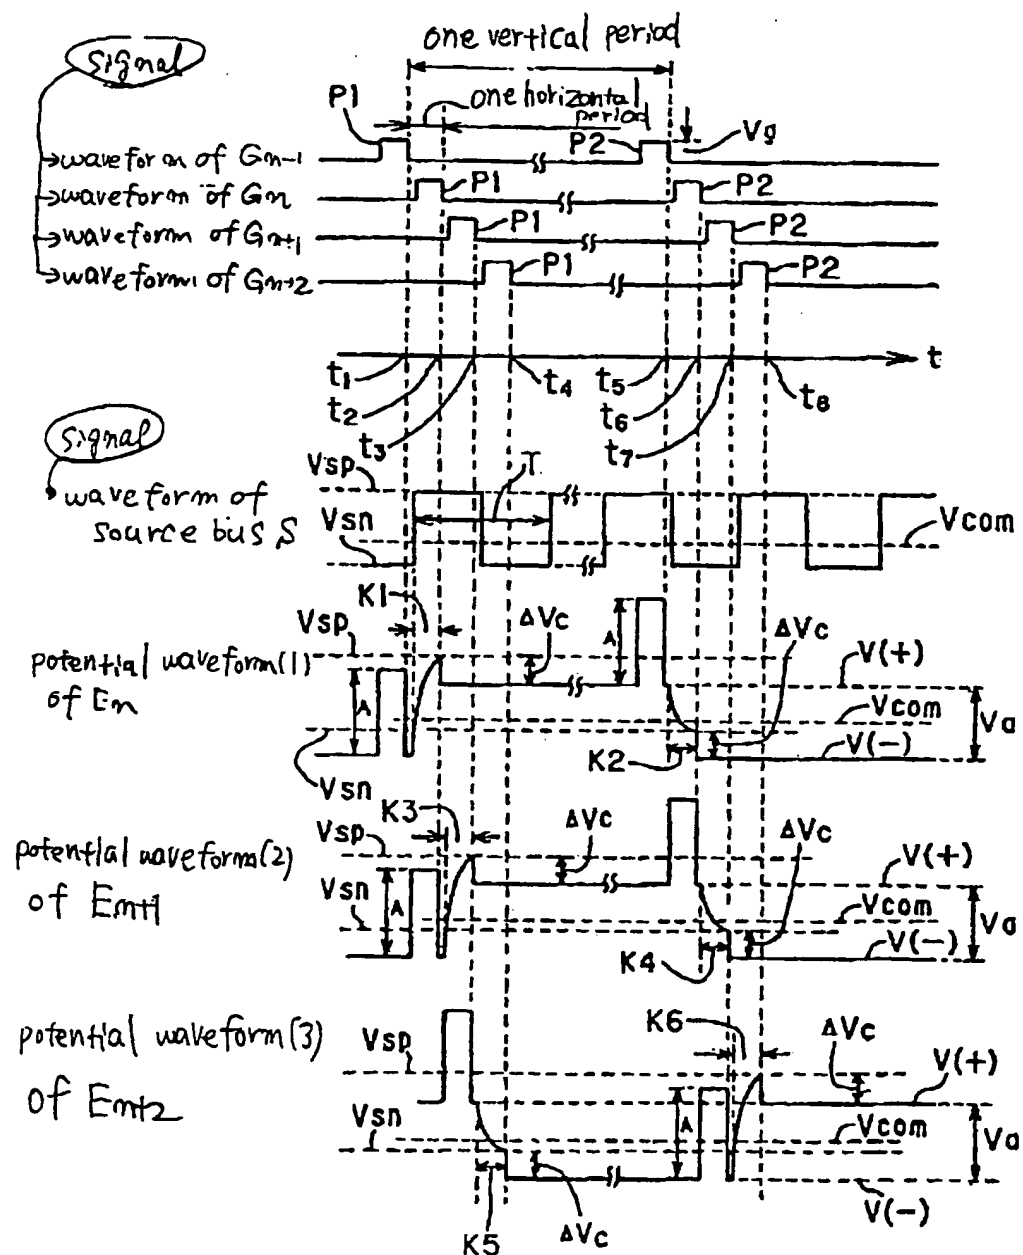 one vertical period
signal
one horizontal
period
P1
P2
Vg
waveform of Gn-1
waveform of Gn
P1
P2
waveform of Gn+1
P1
P2
waveform of Gn+2
P1
P2
t
t1
t2
t3
t4
t5
t6
t7
t8
signal
Vsp
T
waveform of
source bus S
Vsn
Vcom
K1
Vsp
ΔVc
A
ΔVc
V(+)
potential waveform(1)
of En
A
Vcom
Va
V(-)
K2
Vsn
K3
Vsp
ΔVc
ΔVc
potential waveform(2)
of En+1
V(+)
Vsn
A
Vcom
Va
V(-)
K4
potential waveform(3)
of En+2
Vsp
K6
ΔVc
V(+)
Vsn
A
A
Vcom
Va
K5
ΔVc
V(-)